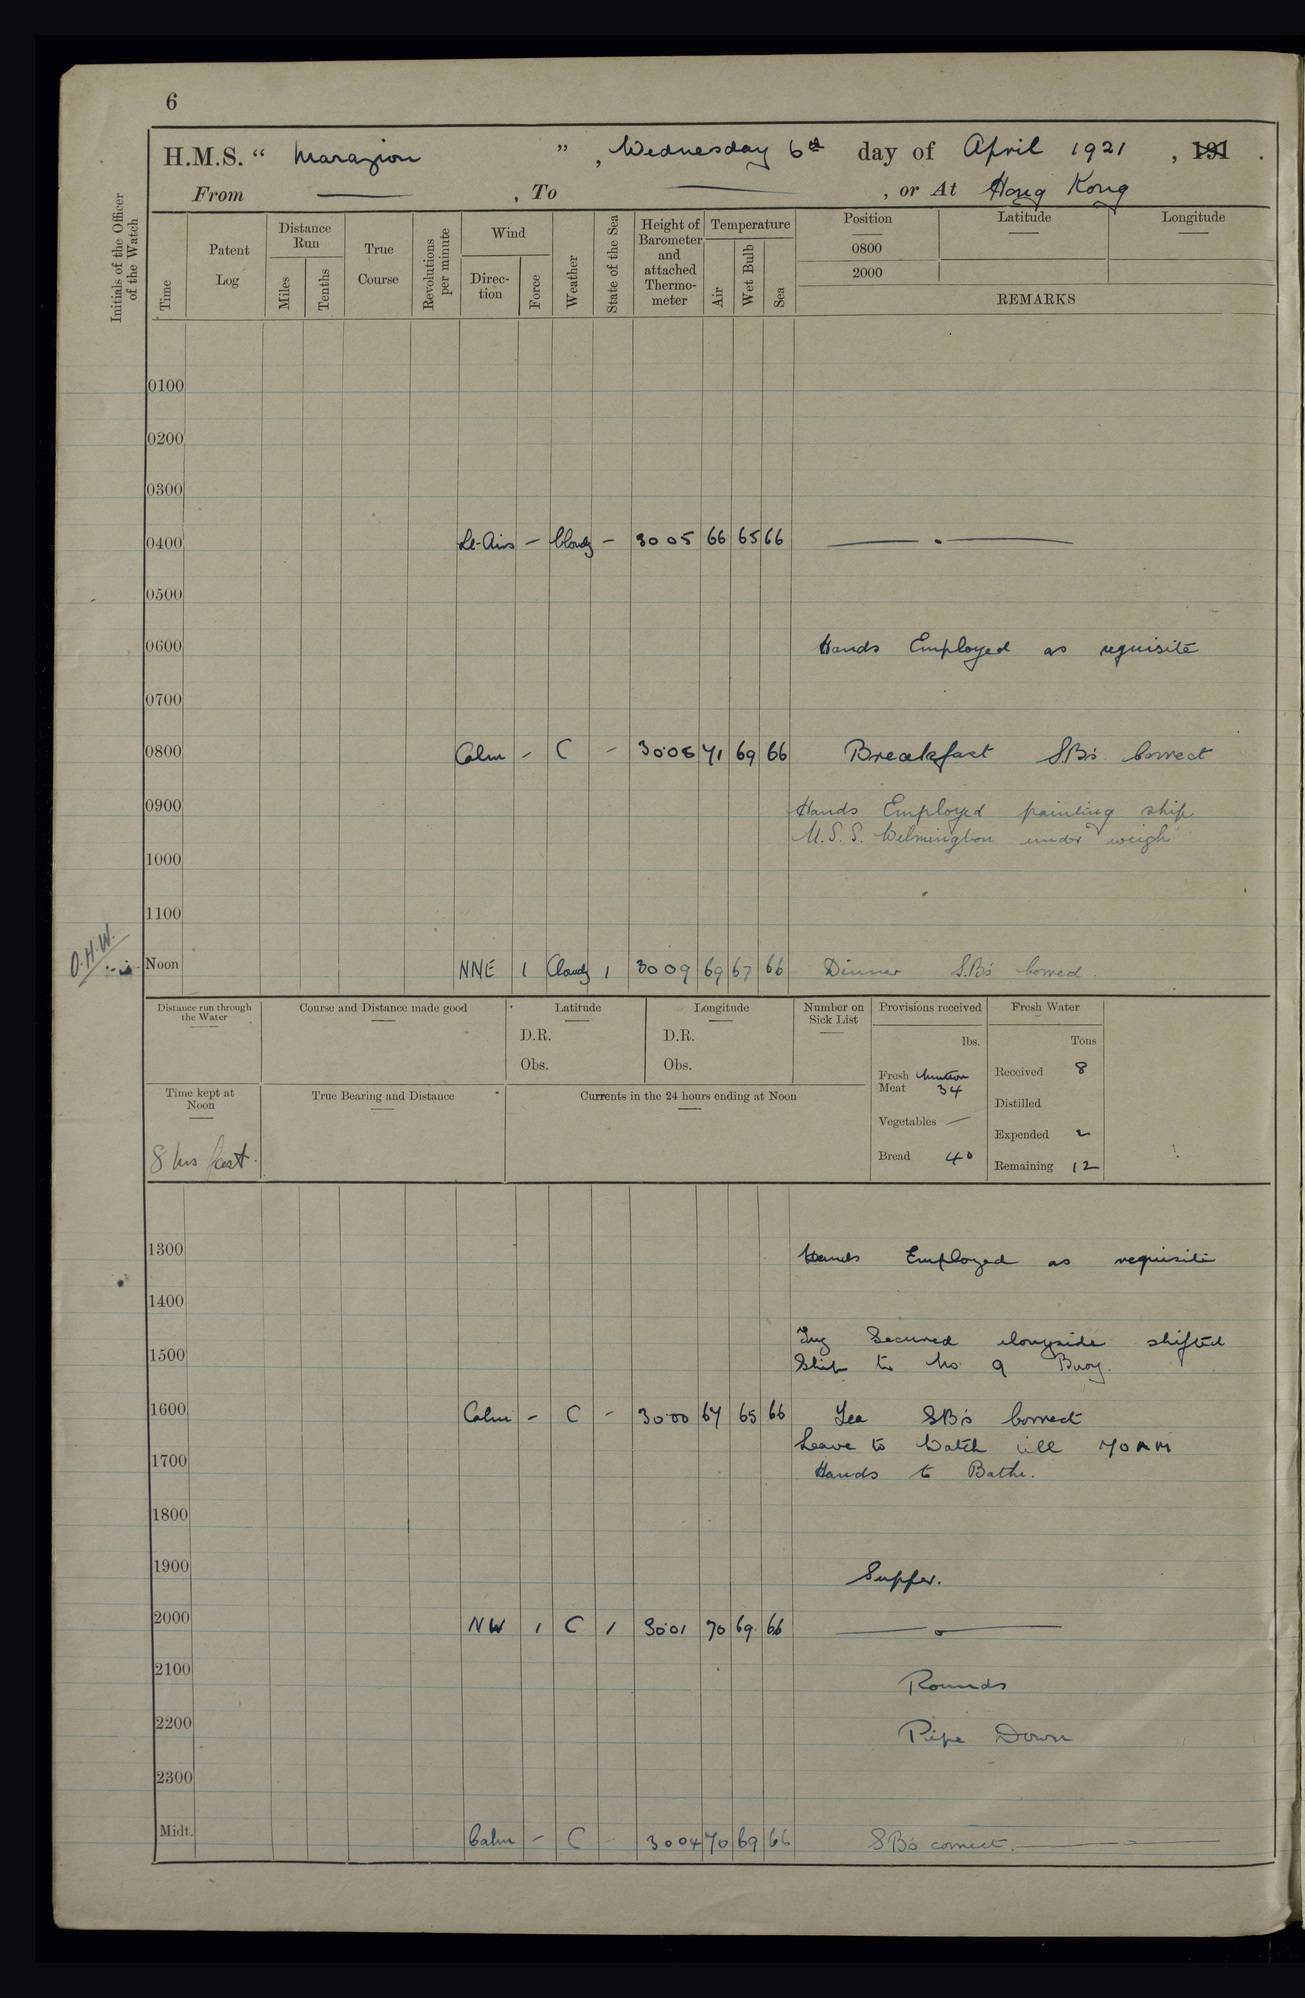 6
H.M.S. “ Marazion ” , Wednesday 6th day of April 1921 , 191 .
From — , To — , or At Hong Kong
Initials of the Officer of the Watch
Time
Patent Log
Distance Run
Miles
Tenths
True Course
Revolutions per minute
Wind
Direc-tion
Force
Weather
State of the Sea
Height of Barometer and attached Thermo-meter
Temperature
Air
Wet Bulb
Sea
Position
Latitude
Longitude
0800
2000
REMARKS
0100
0200
0300
0400 Lt-Airs – Cloudy – 30 05 66 65 66 —— . ——
0500
0600 Hands Employed as requisite
0700
0800 Calm – C – 30·08 71 69 66 Breakfast S.B's. Correct
0900 Hands Employed painting ship
U.S.S. Wilmington under weigh
1000
1100
O.H.W.
Noon NNE 1 Cloudy 1 30 09 69 67 66 Dinner S.B's Correct.
Distance run through the Water
Course and Distance made good
Latitude
D.R.
Obs.
Longitude
D.R.
Obs.
Number on Sick List
Provisions received
lbs.
Fresh Meat Mutton 34
Vegetables —
Bread 40
Fresh Water
Tons
Received 8
Distilled
Expended 2
Remaining 12
Time kept at Noon
8 hrs fast.
True Bearing and Distance
Currents in the 24 hours ending at Noon
1300 Hands Employed as requisite
1400
Tug Secured alongside shifted
1500 Ship to No 9 Buoy.
1600 Calm – C – 30·00 67 65 66 Tea SB's Correct
Leave to Watch till 70AM
1700 Hands to Bathe.
1800
1900 Supper.
2000 NW 1 C 1 30·01 70 69 66 —— . ——
2100 Rounds
2200 Pipe Down
2300
Midt. Calm – C – 30 04 70 69 66 SB's correct.